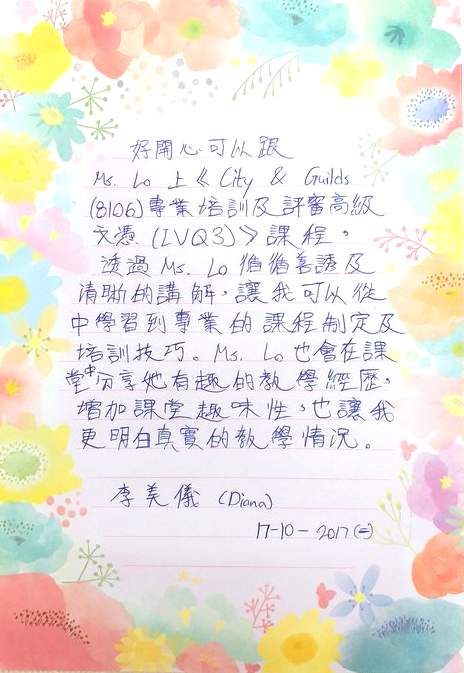 好開心可以跟
Ms. Lo 上《City & Guilds
(8106)專業培訓及評審高級
文憑 (IVQ3)》課程。
透過 Ms. Lo 循循善誘及
清晰的講解，讓我可以從
中學習到專業的課程制定及
培訓技巧。Ms. Lo 也會在課
堂中分享她有趣的教學經歷，
增加課堂趣味性，也讓我
更明白真實的教學情況。
李美儀 (Diana)
17-10-2017(二)